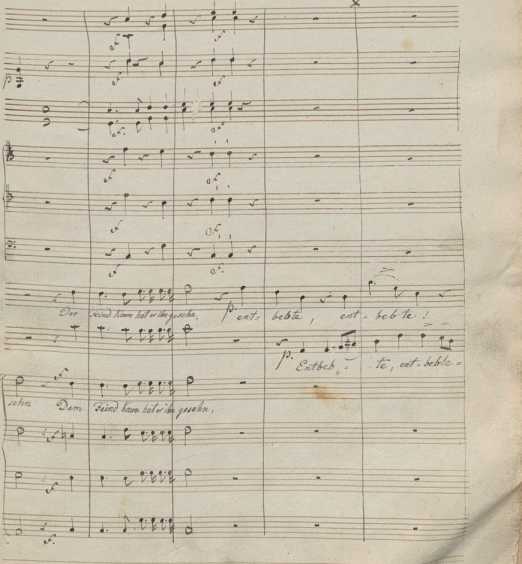 Der Feind kaum hat er ihn gesehn, ent- bebte, ent- bebte!
Entbeb - te, ent-bebte-
sehn Dem Feind kaum hat er ihn gesehn,